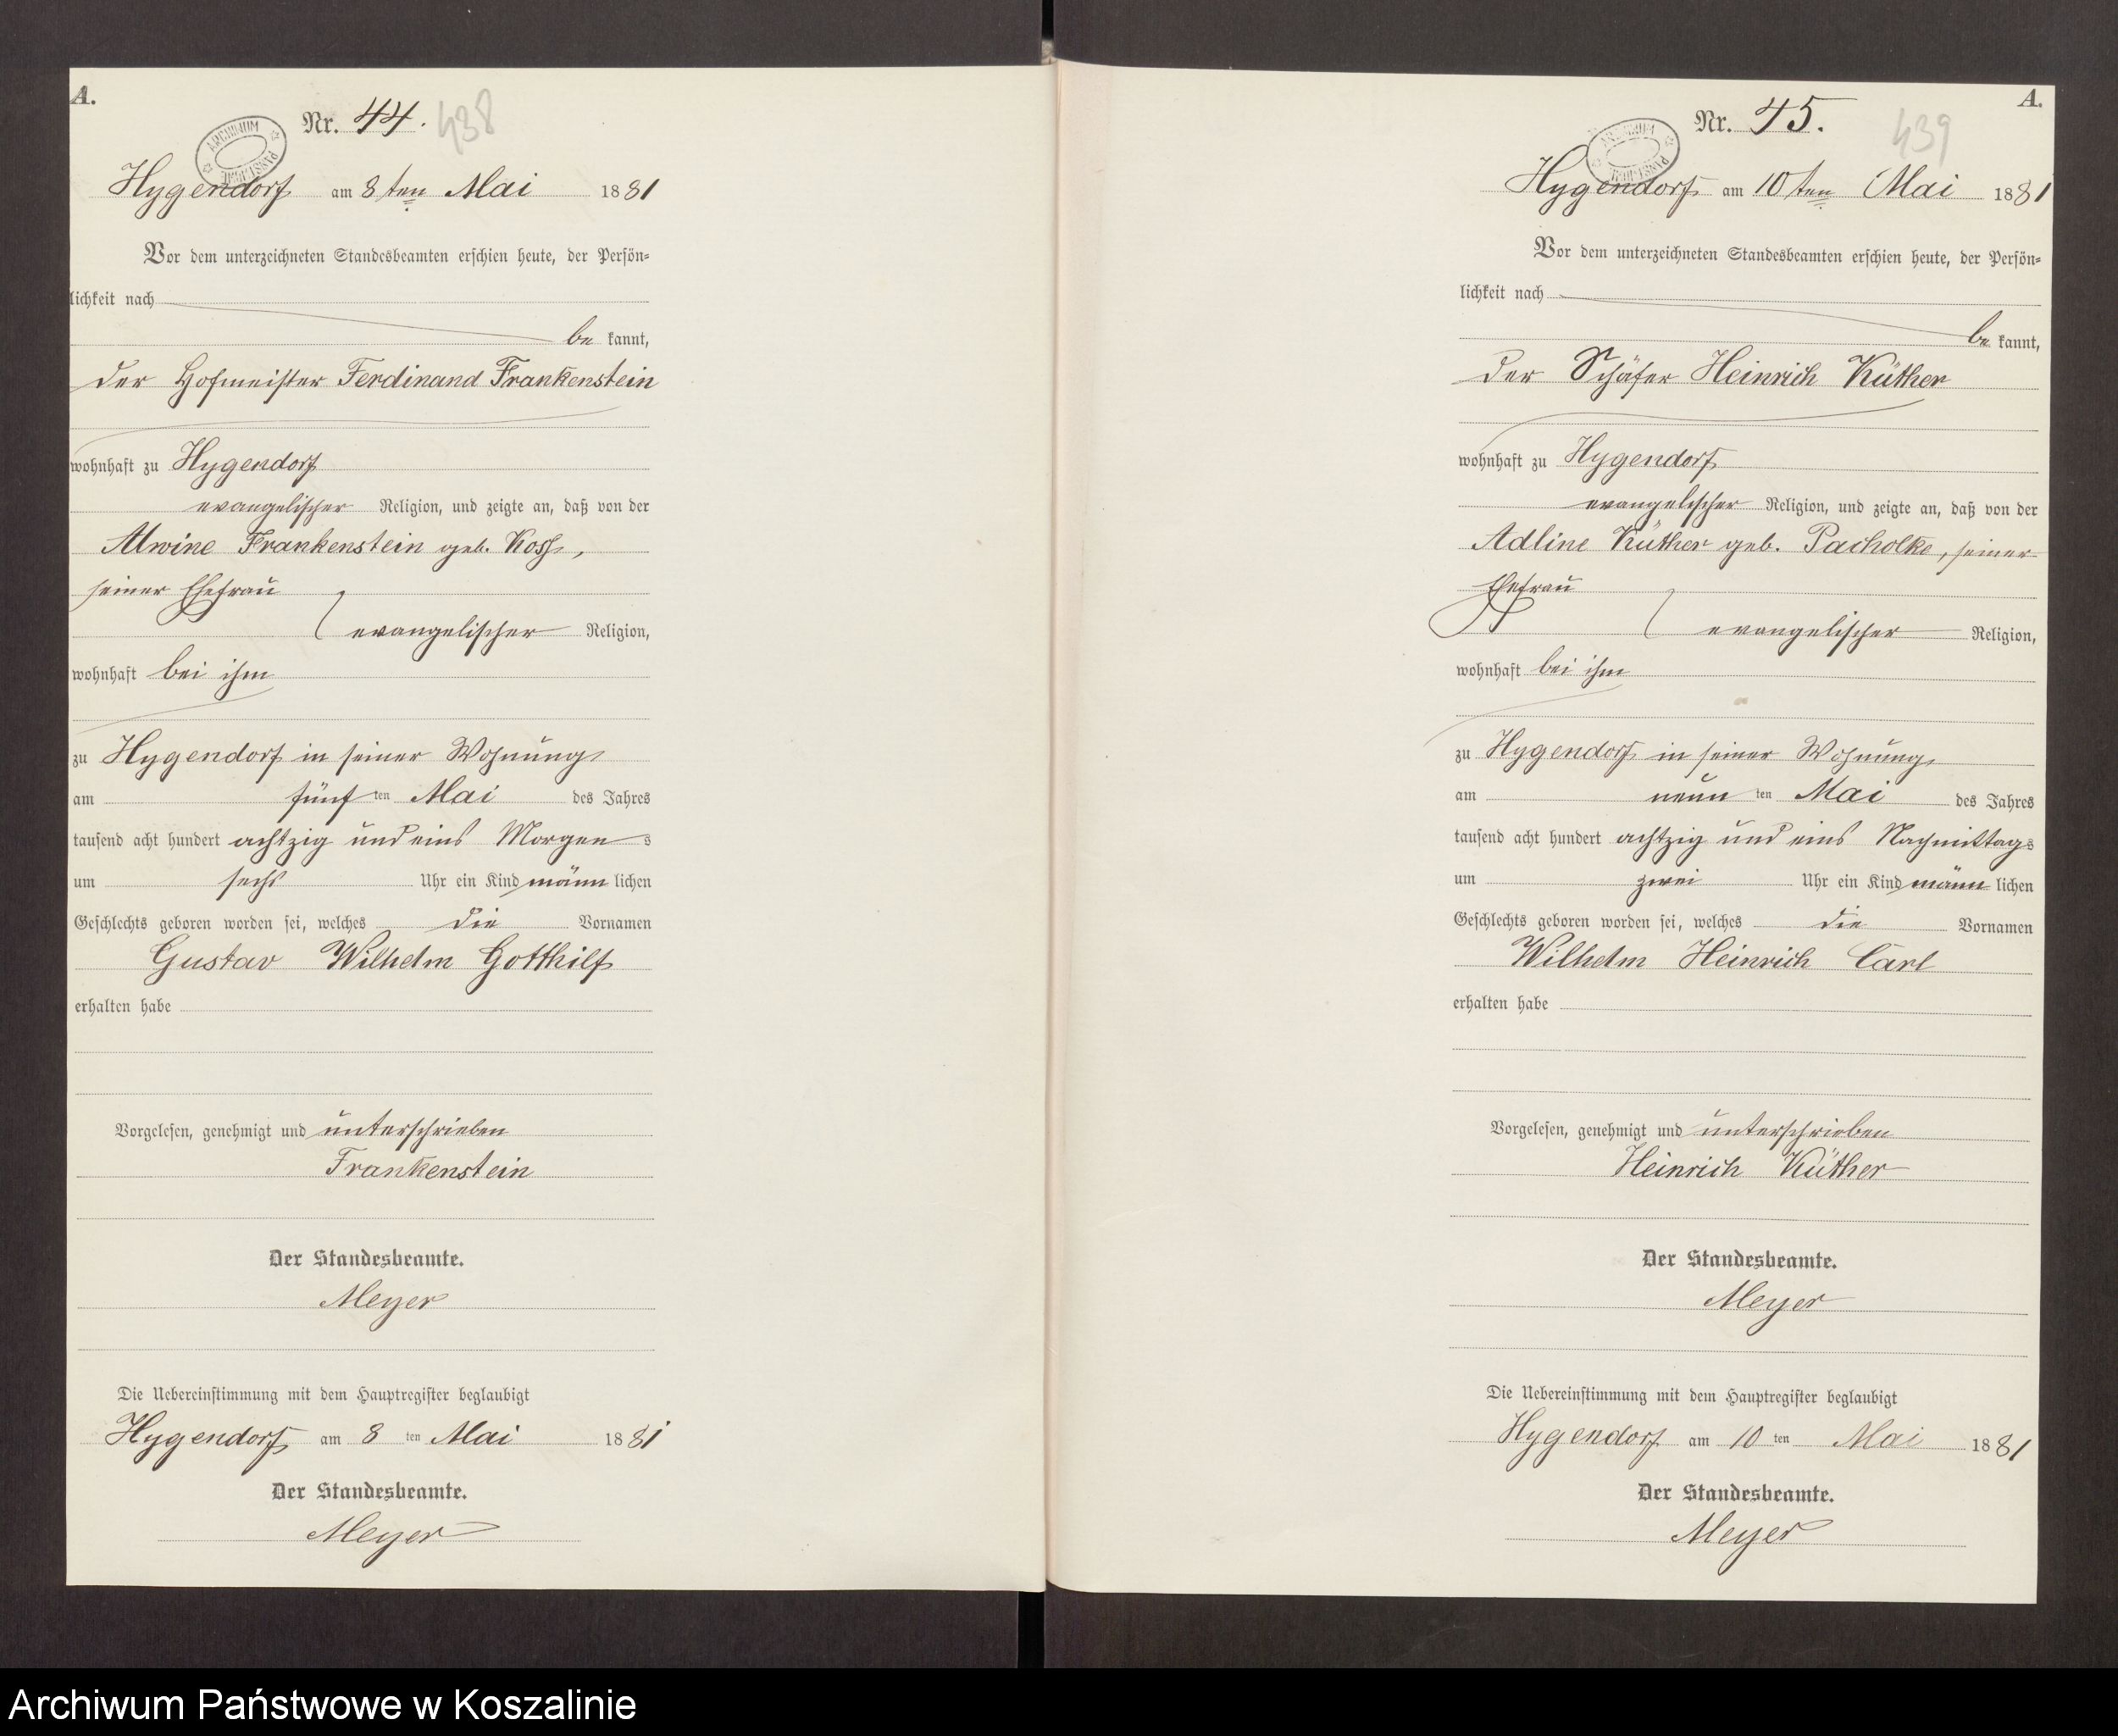 A.
Nr. 44.
438
Hygendorf am 8ten Mai 1881
Vor dem unterzeichneten Standesbeamten erschien heute, der Persön-
lichkeit nach
be kannt,
der Hofmeister Ferdinand Frankenstein
wohnhaft zu Hygendorf
evangelischer Religion, und zeigte an, daß von der
Alwine Frankenstein geb. Koss,
seiner Ehefrau
evangelischer Religion,
wohnhaft bei ihm
zu Hygendorf in seiner Wohnung
am fünf ten Mai des Jahres
tausend acht hundert achtzig und eins Morgen s
um sechs Uhr ein Kind männ lichen
Geschlechts geboren worden sei, welches die Vornamen
Gustav Wilhelm Gotthilf
erhalten habe
Vorgelesen, genehmigt und unterschrieben
Frankenstein
Der Standesbeamte.
Meyer
Die Uebereinstimmung mit dem Hauptregister beglaubigt
Hygendorf am 8 ten Mai 1881
Der Standesbeamte.
Meyer
A.
Nr. 45.
439
Hygendorf am 10ten Mai 1881
Vor dem unterzeichneten Standesbeamten erschien heute, der Persön-
lichkeit nach
be kannt,
der Schäfer Heinrich Küther
wohnhaft zu Hygendorf
evangelischer Religion, und zeigte an, daß von der
Adline Küther geb. Pacholke, seiner
Ehefrau
evangelischer Religion,
wohnhaft bei ihm
zu Hygendorf in seiner Wohnung
am neun ten Mai des Jahres
tausend acht hundert achtzig und eins Nachmittags
um zwei Uhr ein Kind männ lichen
Geschlechts geboren worden sei, welches die Vornamen
Wilhelm Heinrich Carl
erhalten habe
Vorgelesen, genehmigt und unterschrieben
Heinrich Küther
Der Standesbeamte.
Meyer
Die Uebereinstimmung mit dem Hauptregister beglaubigt
Hygendorf am 10 ten Mai 1881
Der Standesbeamte.
Meyer
Archiwum Państwowe w Koszalinie